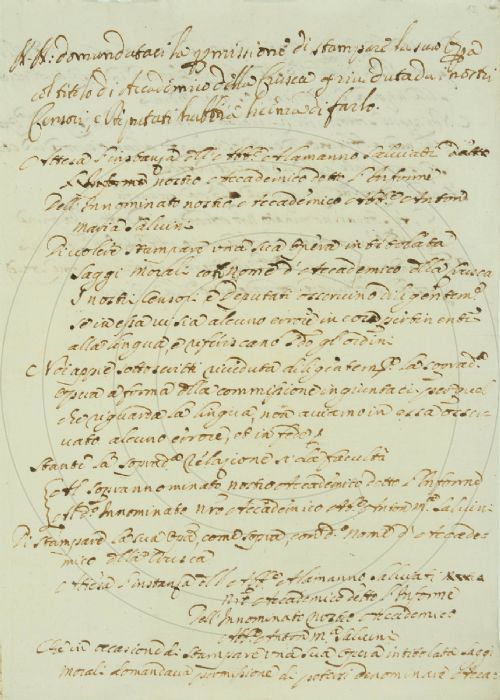 N. N. domandataci la permissione di stampare la sua Opera
col titolo di Accademico della Crusca, riveduta da i nostri
Censori, e Deputati habbia licenza di farlo.
Attesa l'instanza dell' Abbe Alamanno Salviati detto
l'Informe nostro Accademico detto l'Informe
Dell'Innominato nostro Accademico Abbe Anton
maria Salvini
Di poter stampare una sua Opera intitolata
Saggi Morali con nome d'Accademico della Crusca
I nostri Censori e Deputati osservino diligentem.e
se in essa vi sia alcuno errore in cose pertinenti
alla lingua e riferiscano s.do gl'ordini
Noi appiè sottoscritti riveduta diligentem.te la soprad.a
Opera a forma della commissione ingiuntaci
che riguarda la lingua, non aviamo in essa osser-
vato alcuno errore, et in fede
Stante la soprad.a Relazione si dà facultà
Al sopranominato nostro Accademico detto l'Informe
Al d.o Innominato nro Accademico Abbe Anton M.a Salvini
Di stampare la sua Opera come sopra, con d.o nome d'Accade-
mico della Crusca
Attesa l'instanza dell' Abbe Alamanno Salviati
nro Accademico detto l'Informe
Dell'Innominato nostro Accademico
Abbe Anton M.a Salvini
Che in occasione di stampare una sua Opera intitolata Saggi
Morali domandava permissione di potersi denominare Acca-